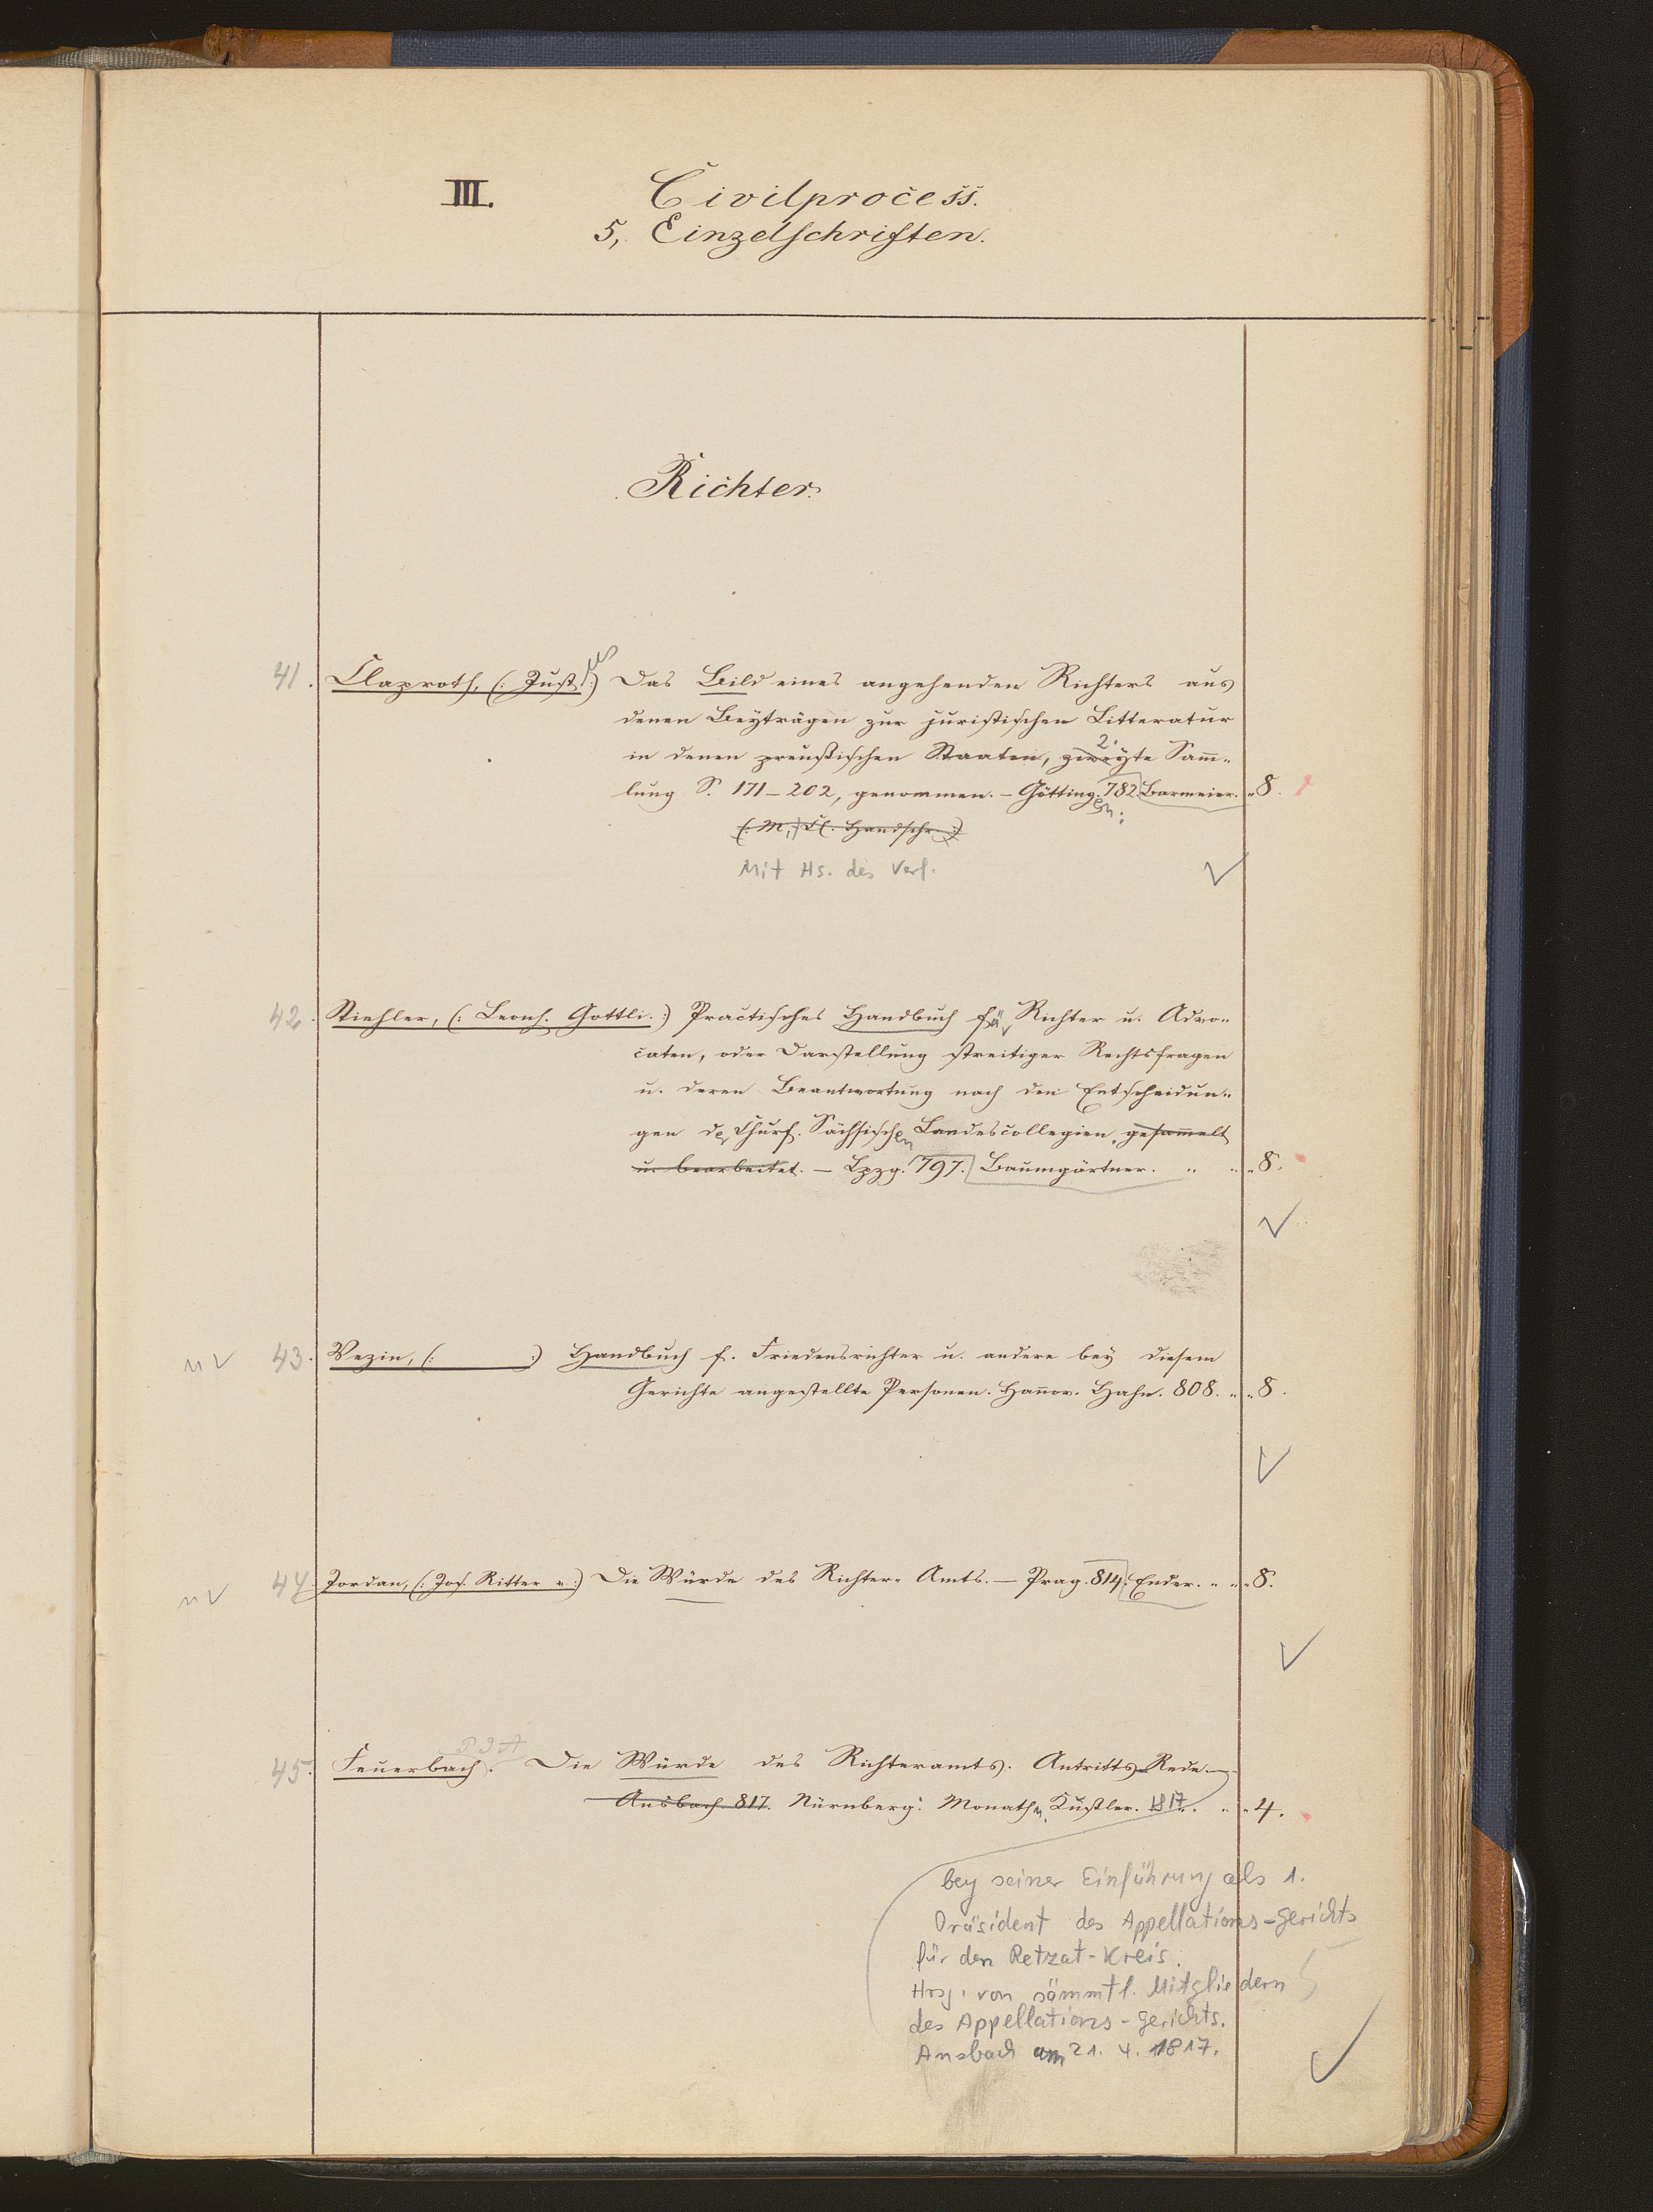 III. Civilprocess.
5, Einzelschriften.
Richter.
41. Claproth, (: Just :) us Das Bild eines angehenden Richters aus
denen Beyträgen zur juristischen Litteratur
in denen preußischen Staaten, zweyte 2. Sam̄-
lung S. 171-202, genommen. - Götting. en: 782. Barmeier. „ 8.
(: M, Cl. Handschr. :)
Mit Hs. des Verf.
42. Stiehler, (: Leonh. Gottli. :) Practisches Handbuch für Richter u. Advo-
caten, oder Darstellung streitiger Rechtsfragen
u. deren Beantwortung nach den Entscheidun-
gen der Churf. Sächsischen Landescollegien, gesam̄elt
u. bearbeitet. - Lpzg. 797. Baumgärtner. „ „ „ 8.
nV 43. Vezin, (: :) Handbuch f. Friedensrichter u. andere bey diesem
Gerichte angestellte Personen. Han̄ov. Hahn. 808. „ „ 8.
nV 44. Jordan, (: Jos. Ritter v. :) Die Würde des Richter-Amts. - Prag. 814. Ender. „ „ „ 8.
P J A
45. Feuerbach. Die Würde des Richteramts. Antritts-Rede.
Ansbach. 817. Nürnberg: Monath u. Kußler. 1817. „ „ 4.
bey seiner Einführung als 1.
Präsident des Appellations-Gerichts
für den Retzat-Kreis.
Hrsg. von sämmtl. Mitgliedern
des Appellations-Gerichts.
Ansbach am 21. 4. 1817.